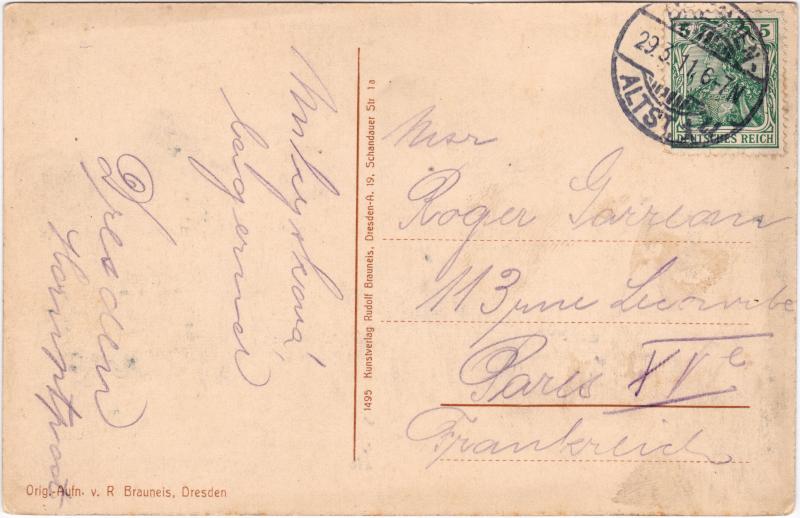 lagernd
Dresden
Hauptpost
1495 Kunstverlag Rudolf Brauneis, Dresden-A. 19, Schandauer Str 1a
Orig.-Aufn. v. R Brauneis, Dresden
29.3.11.6-7N
ALTST.
5
DEUTSCHES REICH
Msr
Roger Garreau
113 rue Lecourbe
Paris XVe
Frankreich